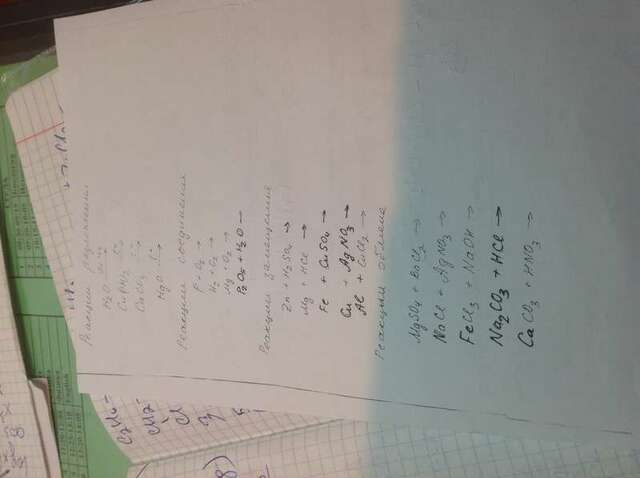 Реакции разложения
H₂O эл.т.→
Cu(OH)₂ t→
CaCO₃ t→
HgO t→
Реакции соединения
P + O₂ →
H₂ + O₂ →
Mg + O₂ →
P₂O₅ + H₂O →
Реакции замещения
Zn + H₂SO₄ →
Mg + HCl →
Fe + CuSO₄ →
Cu + AgNO₃ →
Al + CuCl₂ →
Реакции обмена
MgSO₄ + BaCl₂ →
NaCl + AgNO₃ →
FeCl₃ + NaOH →
Na₂CO₃ + HCl →
CaCO₃ + HNO₃ →